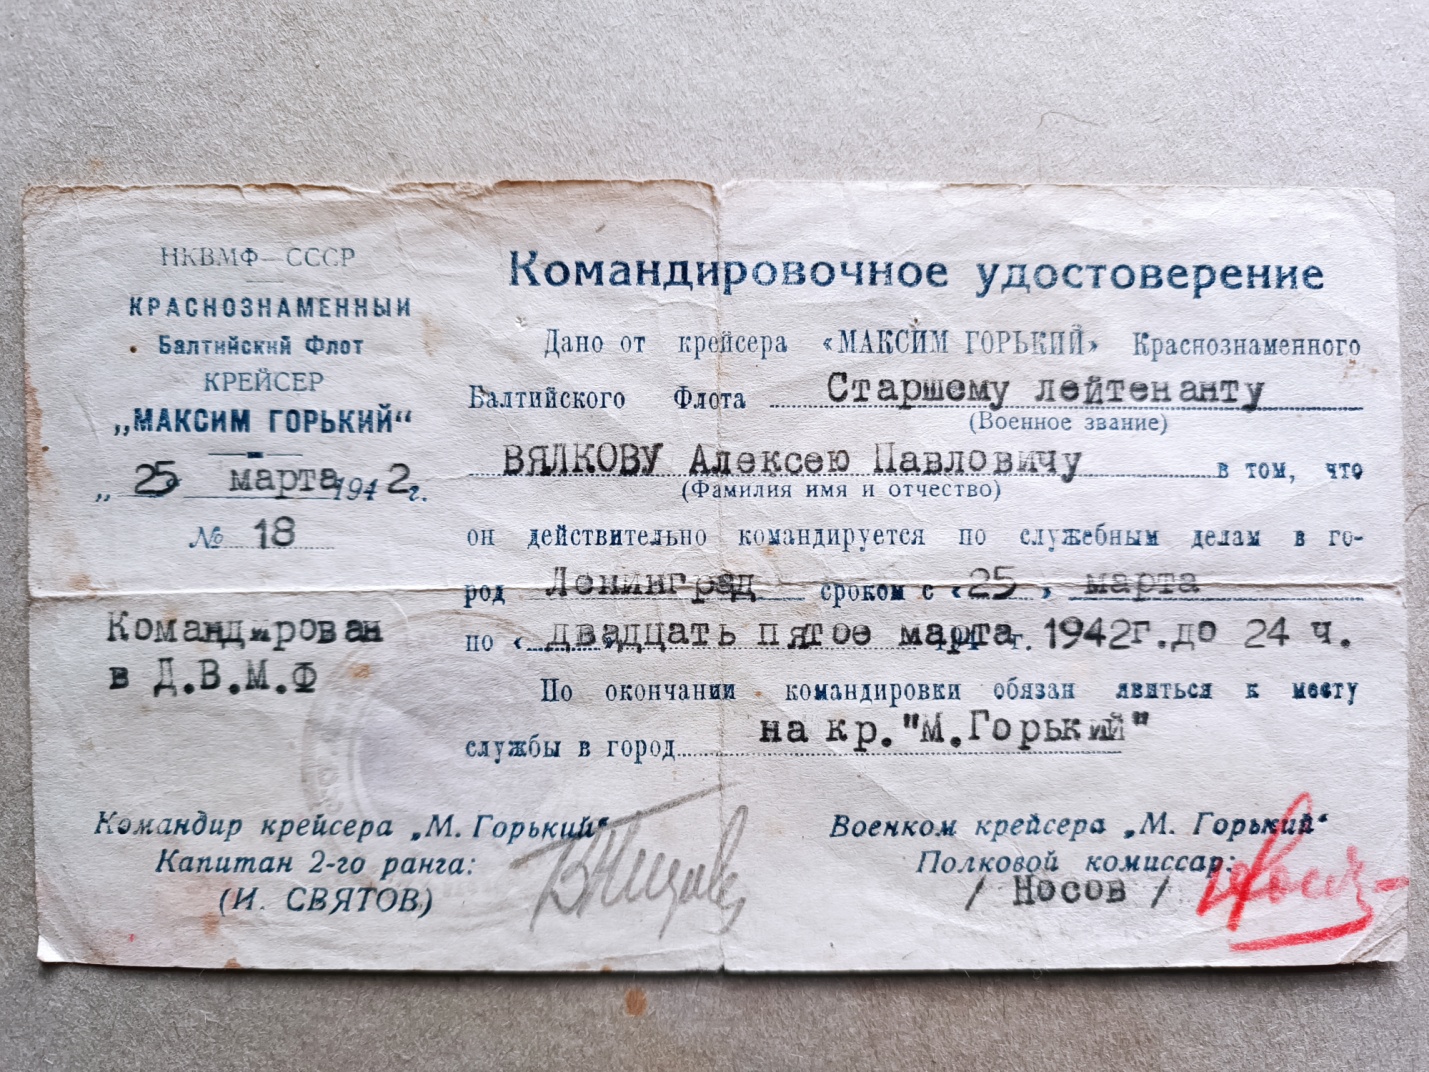 НКВМФ—СССР
КРАСНОЗНАМЕННЫЙ
Балтийский Флот
КРЕЙСЕР
„МАКСИМ ГОРЬКИЙ“
„ 25 марта 1942 г.
№ 18
Командирован
в Д.В.М.Ф
Командировочное удостоверение
Дано от крейсера «МАКСИМ ГОРЬКИЙ» Краснознаменного
Балтийского Флота Старшему лейтенанту
(Военное звание)
ВЯЛКОВУ Алексею Павловичу в том, что
(Фамилия имя и отчество)
он действительно командируется по служебным делам в го-
род Ленинград сроком с «25 » марта
по « двадцать пятое » марта г. 1942г. до 24 ч.
По окончании командировки обязан явиться к месту
службы в город на кр."М.Горький"
Командир крейсера „М. Горький“
Капитан 2-го ранга:
(И. СВЯТОВ)
Военком крейсера „М. Горький“
Полковой комиссар:
/ Носов /